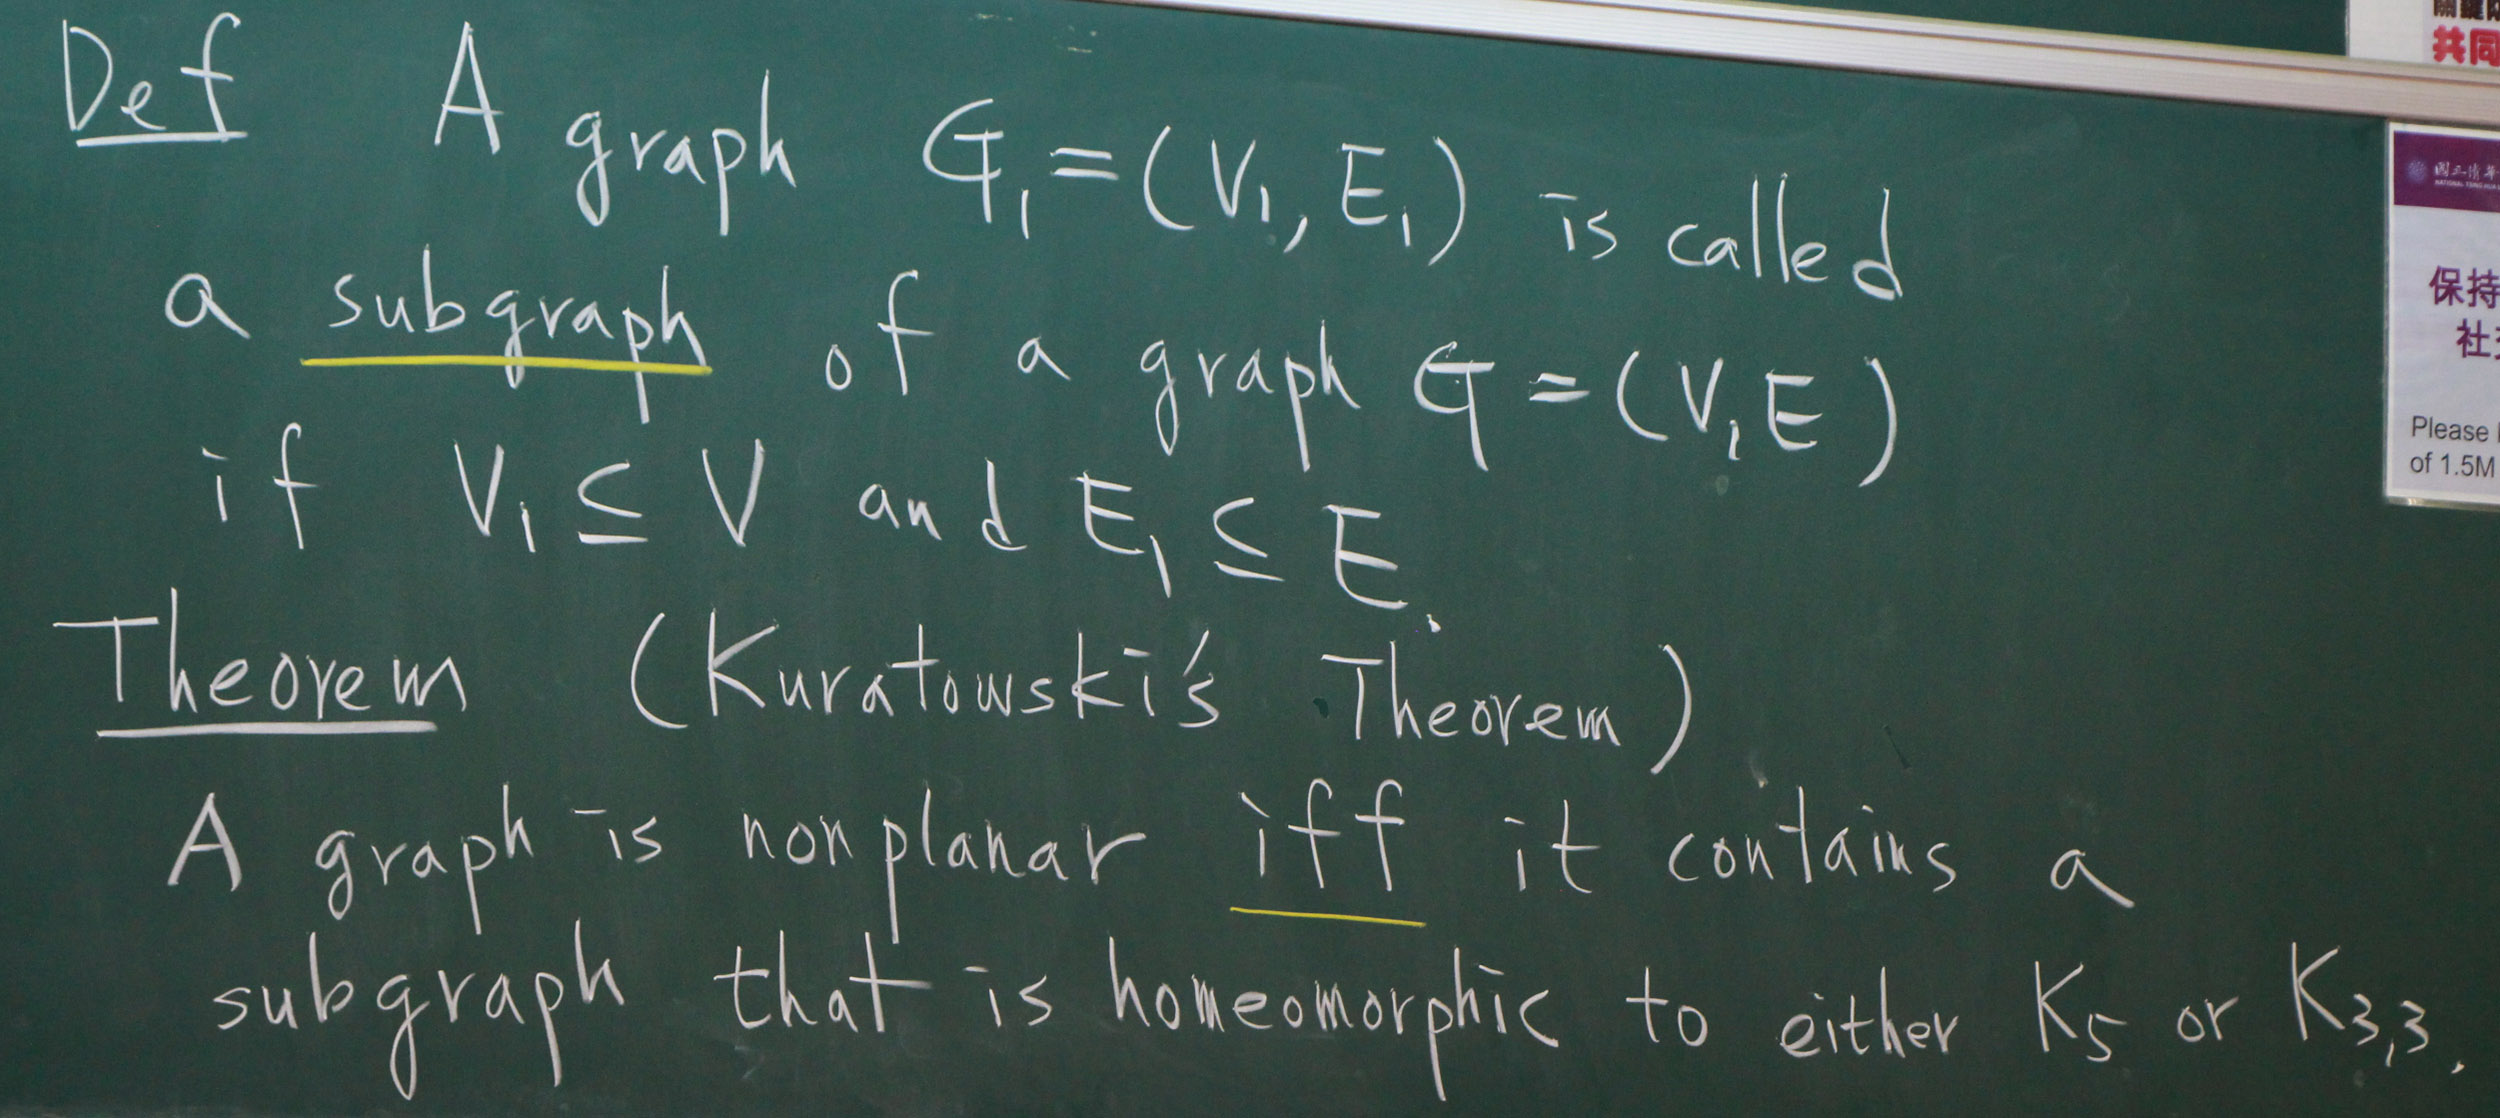 Def A graph G₁ = (V₁, E₁) is called
a subgraph of a graph G = (V, E)
if V₁ ⊆ V and E₁ ⊆ E.
Theorem (Kuratowski's Theorem)
A graph is nonplanar iff it contains a
subgraph that is homeomorphic to either K₅ or K₃,₃.
共同
保持
Please
of 1.5M